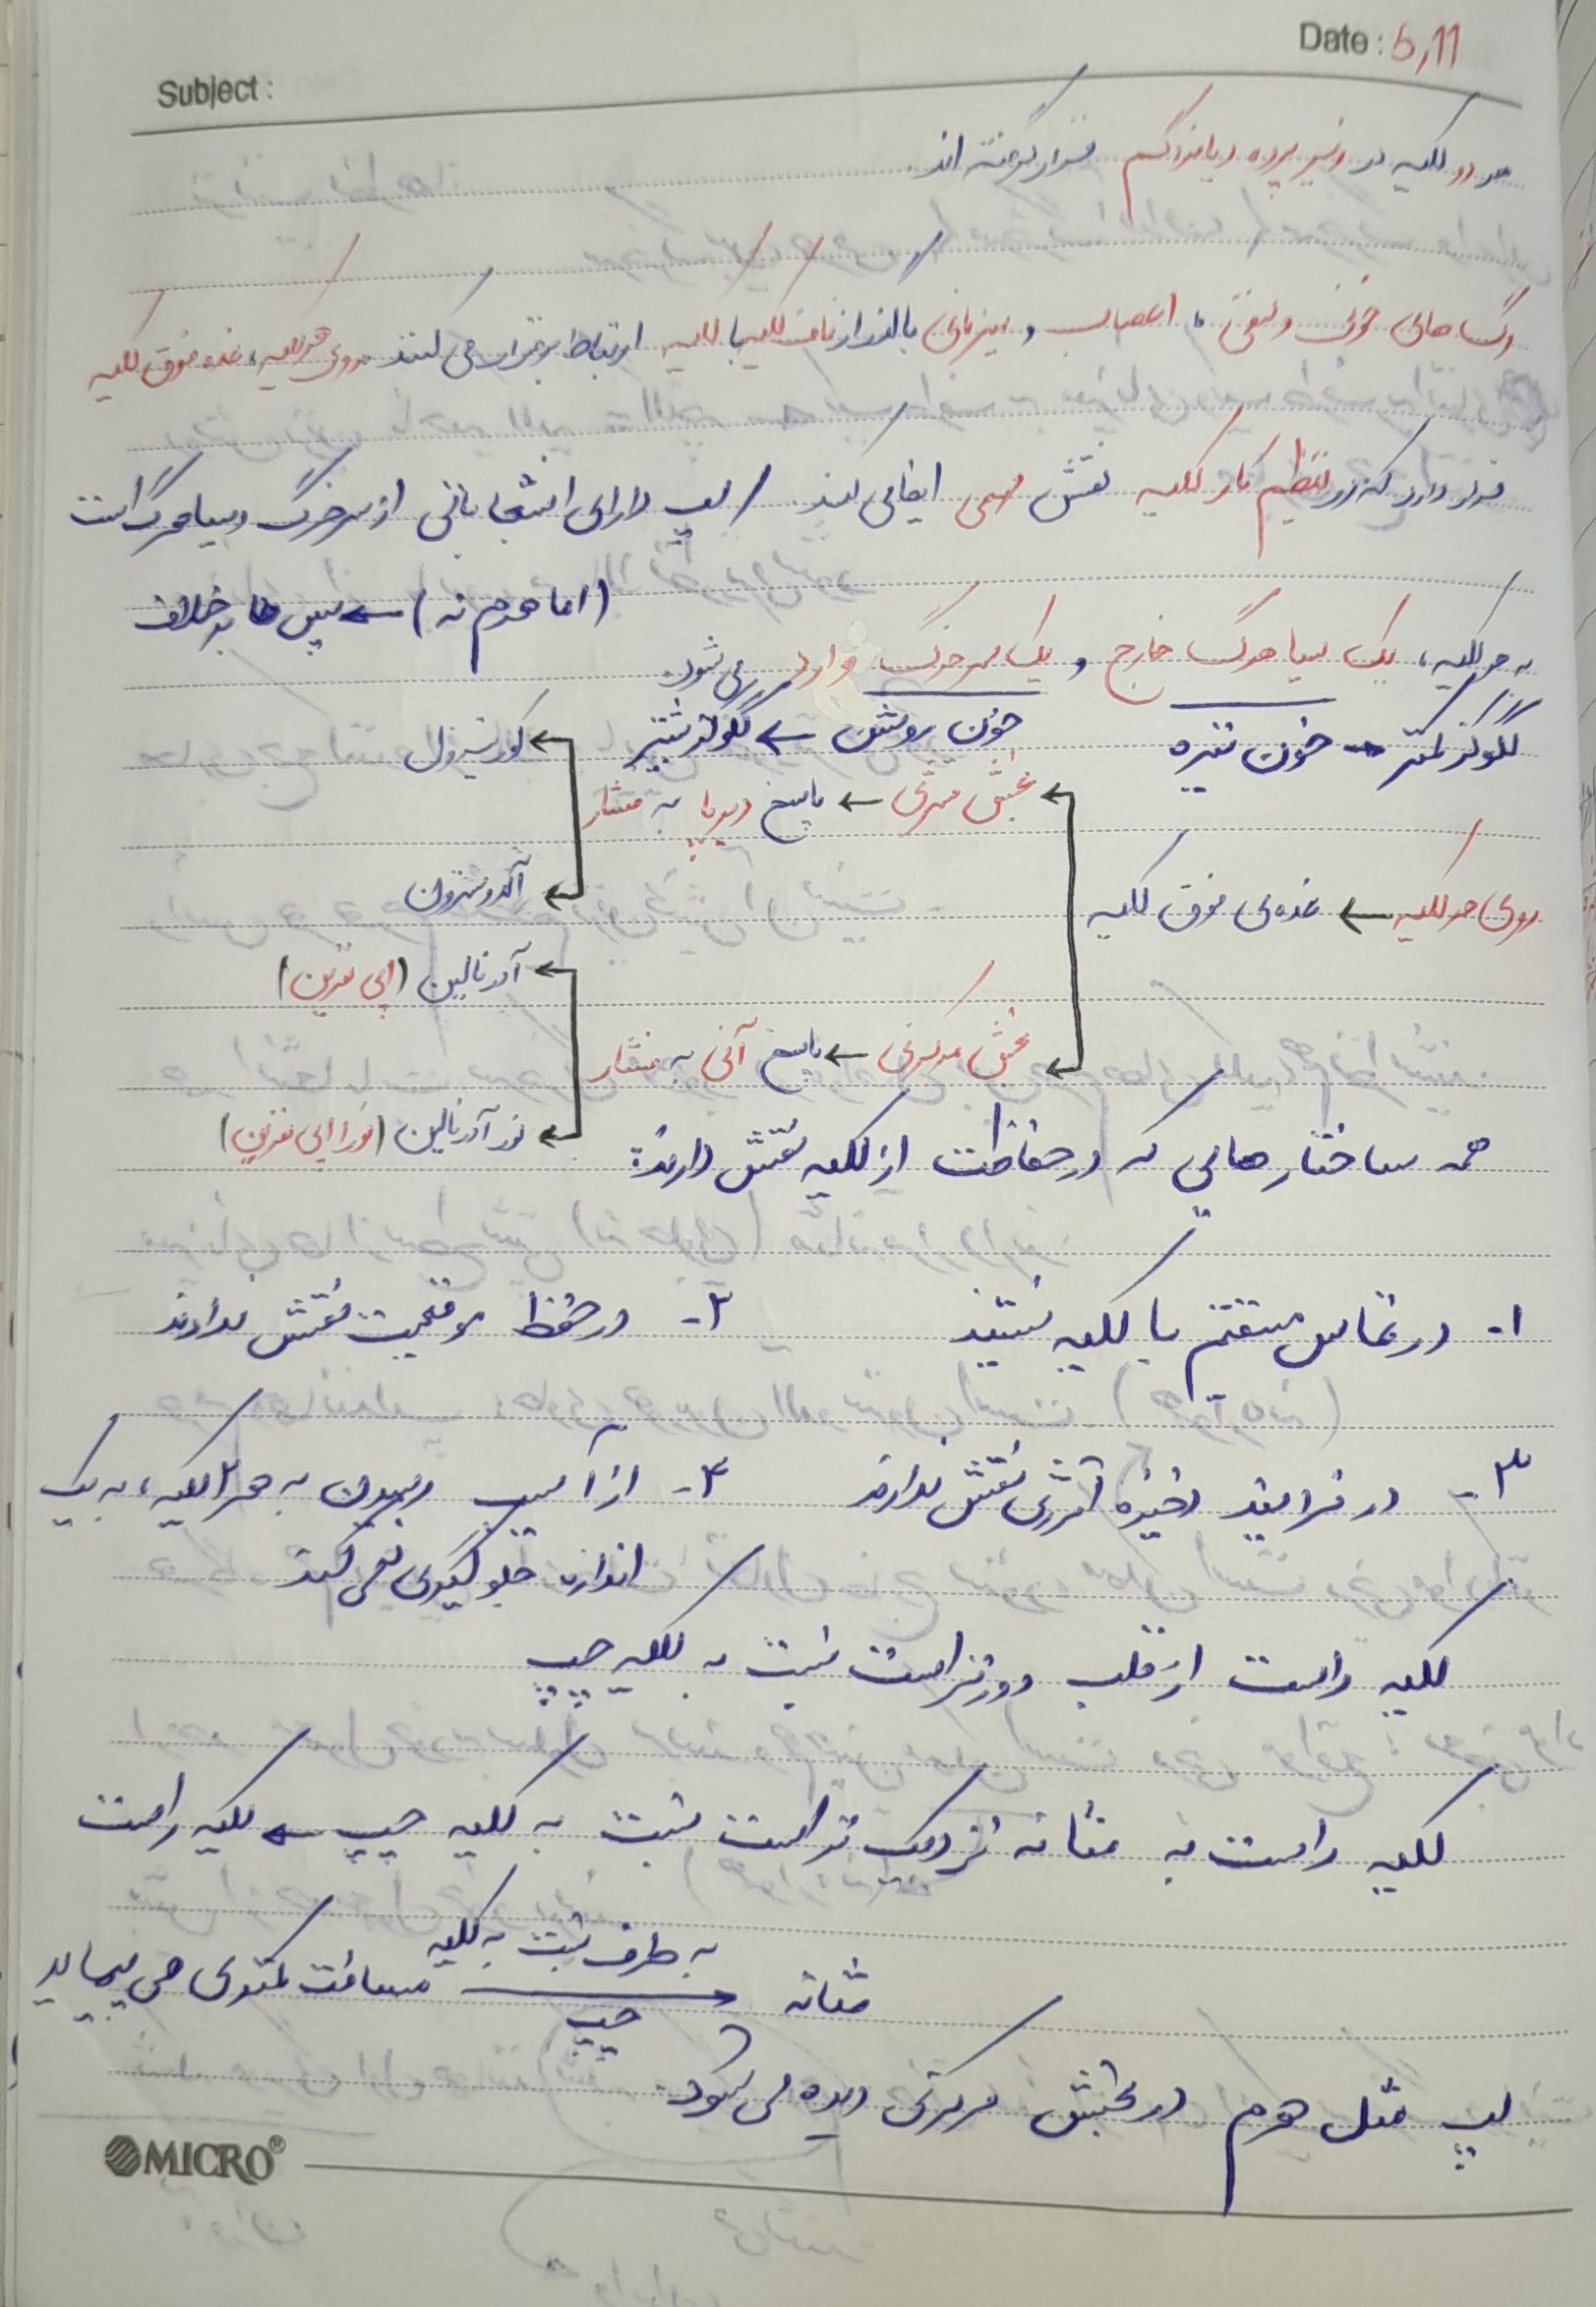 Date: 5,11
Subject:
هر دو کلیه در زیر پرده دیافراگم قرار گرفته اند.
رگ های خونی و لنفی، اعصاب و میزنای با گذر از ناف کلیه با کلیه ارتباط برقرار می کنند. روی هر کلیه، غده فوق کلیه
قرار دارد که در تنظیم کار کلیه نقش مهمی ایفا می کند. / لپ دارای انشعاباتی از سرخرگ و سیاهرگ است
(اما هرم نه) ← پس ها برخلاف
به هر کلیه، یک سیاهرگ خارج و یک سرخرگ وارد می شود.
گلوکز کمتر ← خون تیره
خون روشن ← گلوکز بیشتر
کورتیزول
بخش قشری ← پاسخ دیرپا به فشار
آلدوسترون
روی هر کلیه ← غده‌ی فوق کلیه
آدرنالین (اپی نفرین)
بخش مرکزی ← پاسخ آنی به فشار
نورآدرنالین (نوراپی نفرین)
همه ساختارهایی که در حفاظت از کلیه نقش دارند:
۱- در تماس مستقیم با کلیه نیستند
۲- در حفظ موقعیت نقش ندارند
۳- در فرایند ذخیره انرژی نقش ندارند
۴- از آسیب رسیدن به هر ۲ کلیه، به یک
اندازه جلوگیری نمی کند
کلیه راست از قلب دورتر است نسبت به کلیه چپ
کلیه راست به مثانه نزدیک تر است نسبت به کلیه چپ ← کلیه راست
به طرف مثانه نسبت به کلیه چپ مسافت کمتری می پیماید
لپ مثل هرم در بخش مرکزی دیده می شود.
MICRO®